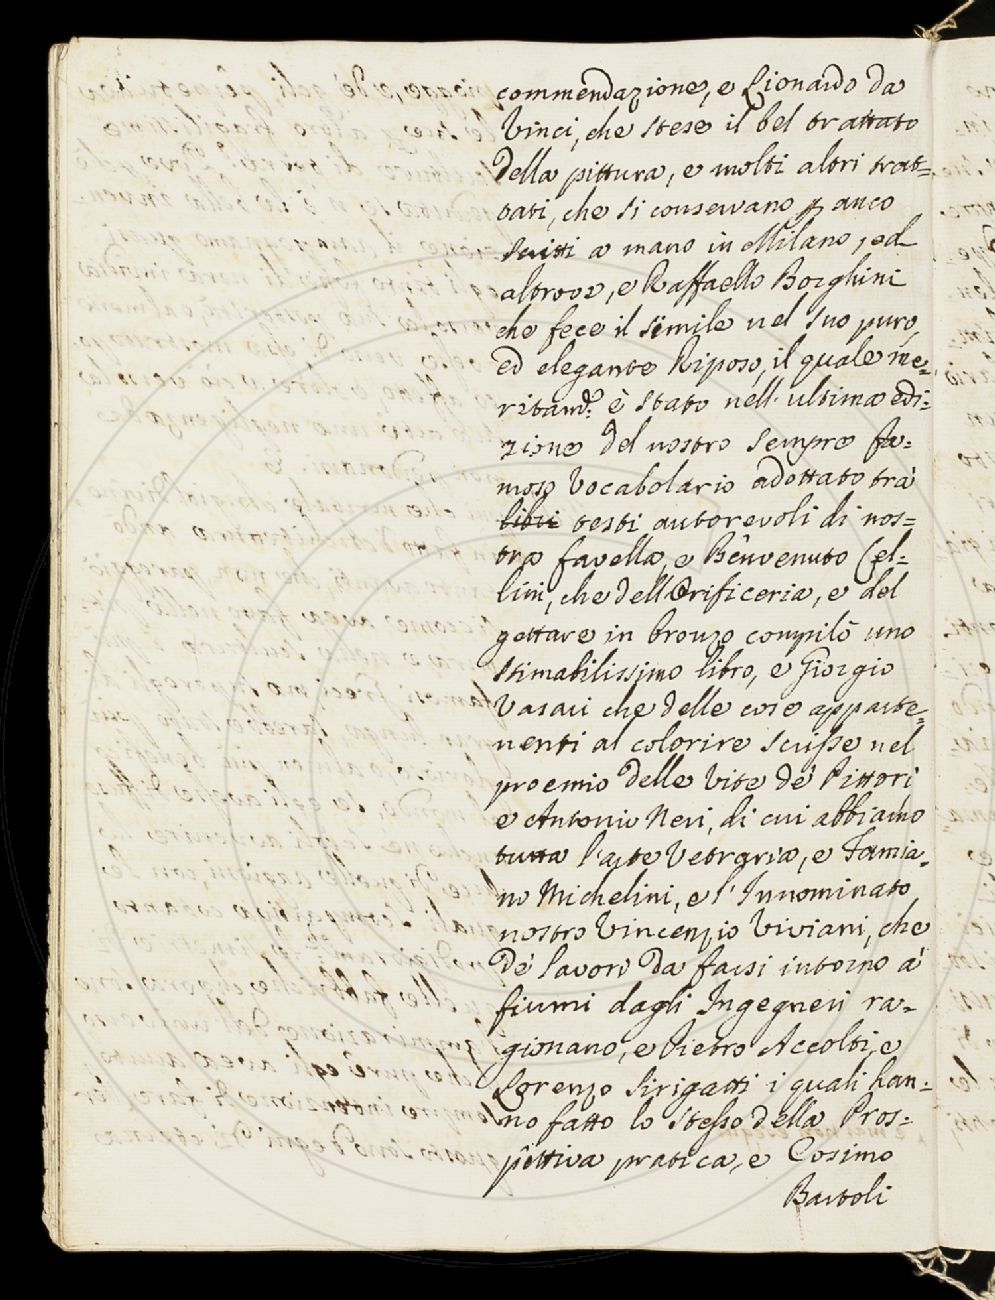 commendazione, e Lionardo da
Vinci, che stese il bel trattato
della pittura, e molti altri trat=
tati, che si conservano p anco
scritti a mano in Milano, ed
altrove, e Raffaello Borghini
che fece il simile nel suo puro,
ed elegante Riposo, il quale me=
ritamd.e è stato nell' ultima edi=
zione del nostro sempre fa=
moso Vocabolario adottato tra'
libri testi autorevoli di nos=
tra favella, e Benvenuto Cel=
lini, che dell'Orificeria, e del
gettare in bronzo compilò uno
stimabilissimo libro, e Giorgio
Vasari che delle cose apparte=
nenti al colorire scrisse nel
proemio delle Vite de' Pittori
e Antonio Neri, di cui abbiamo
tutta l'arte Vetraria, e Famia=
no Michelini, e l' Innominato
nostro Vincenzio Viviani, che
de' lavori da farsi intorno a'
fiumi dagli Ingegneri ra=
gionano, e Pietro Accolti, e
Lorenzo Sirigatti i quali han=
no fatto lo stesso della Pros=
pettiva pratica, e Cosimo
Bartoli